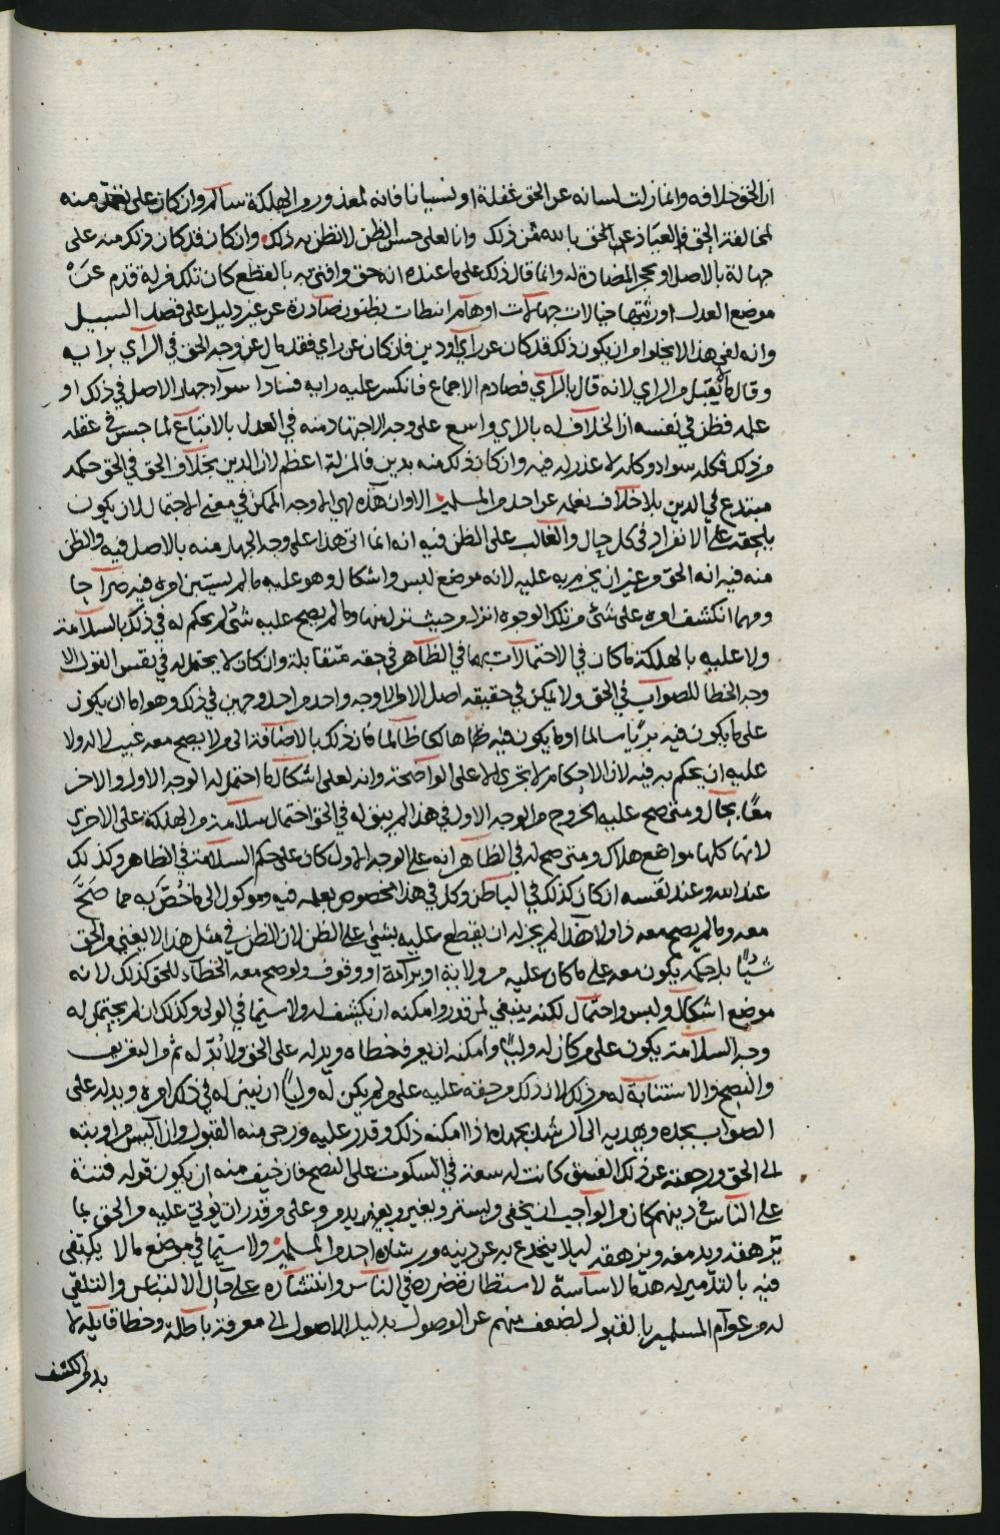 ان الحق خلافه وانما زلت لسانه عن الحق غفلة او نسيانا فانه لمعذور ومن الهلكة سالم وان كان على تعمد منه
لمخالفته الحق والعياذ عن الحق بالله من ذلك وانا لعلى حسن الظن لا نظن به ذلك وان كان قد كان ذلك منه على
جهالة بالاصل او بحجر المضادة له وانما قال ذلك على ما عنده انه حق وافتى به بالقطع كان تلك منزلة قدم عن
موضع العدل اورثتها خيالات جهالات اوهام انبطات بظنون صادرة عن غير دليل على قصد السبيل
وانه لفي هذا لا يخلو من ان يكون ذلك قد كان عن رأي او دين فان كان عن راي فقد مال عن وجه الحق في الرأي برايه
وقال ما لا يقبل من الراي لانه قال بالرأي فصادم الاجماع فانكسر عليه رايه فسادا سواء جهل الاصل في ذلك او
علمه فظن في نفسه ان الخلاف له بالراي واسع على وجه الاجتهاد منه في العدل بالاتباع لما حسن في عقله
من ذلك فكله سواء وكله لا عذر له فيه وان كان ذلك منه بدين فالمزلة اعظم لان الدين بخلاف الحق في الحق حكمه
مبتدع في الدين بلا خلاف نعلمه عن احد من المسلمين الا وان هذه لهي الاوجه الممكن في معنى الاحتمال لان يكون
بلحقه على الانفراد في كل حال والغالب على الظن فيه انه انما اتى هذا على وجه الجهل منه بالاصل فيه والظن
منه فيه انه الحق من غير ان يجزم به عليه لانه موضع لبس واشكال وهو عليه ما لم يستبن امره فيه صراحا
ومهما انكشف امره على شئ من تلك الوجوه انزل من حيث نزل منها وما لم يصح عليه شئ لم يحكم له في ذلك بالسلامة
ولا عليه بالهلكة ما كان في الاحتمالات بهما في الظاهر في حقه متقابلة وان كان لا يحتمل له في نفس القول الا
وجه الخطا للصواب في الحق ولا يمكن في حقيقة اصل الامر الا وجه واحد من احد وجهين في ذلك وهو اما ان يكون
على ما يكون فيه بريا سالما او ما يكون فيه هالكا ظالما فان ذلك بالاضافة الى من لا يصح معه غيب لا له ولا
عليه ان يحكم به فيه لان الاحكام لا تجرى الا على الواضحة وانه لعلى اشكال ما احتمل له الوجه الاول والاخر
معا بحال ومتى صح عليه الخروج من الوجه الاول في هذا لم يبق له في الحق احتمال سلامة من الهلكة على الاخرى
لانها كلها مواضع هلاك ومتى صح له في الظاهر انه على الوجه الاول كان على حكم السلامة في الظاهر وكذلك
عند الله وعند نفسه ان كان كذلك في الباطن وكل في هذا مخصوص بعلمه فيه وموكول الى ما خص به مما صح
معه وما لم يصح معه ذا ولا هذا لم يجز له ان يقطع عليه بشئ على الظن لان الظن في مثل هذا لا يغني من الحق
شيئا بل حكمه يكون معه على ما كان عليه من ولاية او براءة او وقوف ولو صح معه الخطاء للحق كذلك لانه
موضع اشكال ولبس واحتمال لكنه ينبغي لمن قدر وامكنه ان يكشف له ولا سيما في الولي وكذلك ان لم يحتمل له
وجه السلامة يكون على من كان له وليا وامكنه ان يعرفه خطاه ويدله على الحق ولا بد له ثم من التعريف
والنصح والاستتابة له من ذلك لان ذلك من حقه عليه على من لم يكن له وليا ان يبين له في ذلك امره ويدله على
الصواب بجده ويهديه الى الرشد بجهده اذا امكنه ذلك وقدر عليه ورجى منه القبول وان ايس من اوبته
الى الحق ورجعته عن ذلك الفسق كانت له سعة في السكوت على النصح فان خيف منه ان يكون قوله فتنة
على الناس في دينهم كان من الواجب ان يخفى ويستر ويغير ويعير به من وعلى من قدر ان يؤتى عليه من الحق بما
يزهقه ويدمغه ويزهقه ليلا ينخدع به عن دينه ورشاده احد من المسلمين ولا سيما في موضع ما لا يكتفى
فيه بالتدمير له هدما لاساسه لاستطار ضرره في الناس وانتشاره على حال الالتباس والتلقي
له من عوام المسلمين بالقبول لضعف منهم عن الوصول بدليل الاصول الى معرفة باطله وخطا قايله لا
بد من الكشف